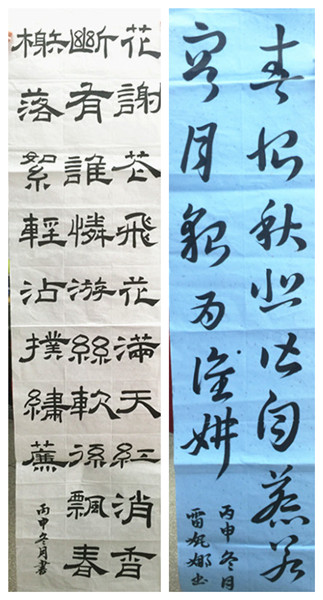 花謝花飛花滿天紅消香
斷有誰憐游絲軟係飄春
榭落絮輕沾撲繡簾
丙申冬月書
春恨秋悲皆自惹花
容月貌为谁妍
丙申冬月
雷妮娜书